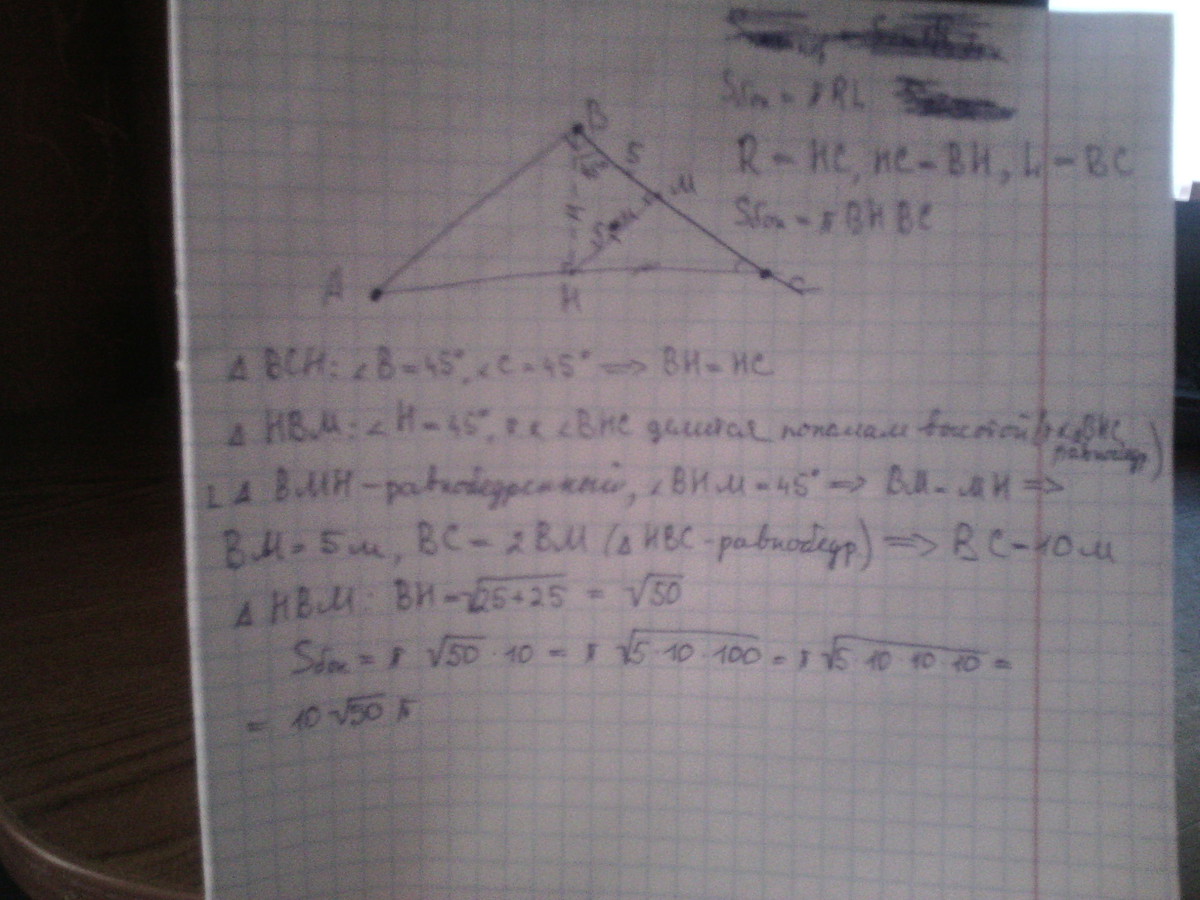 Sбок = πRL
R = HC, HC = BH, L = BC
Sбок = π BH BC
B
5
M
45°
5 м
A
H
C
Δ BCH: ∠B = 45°, ∠C = 45° ⇒ BH = HC
Δ HBM: ∠H = 45°, т.к ∠BHC делится пополам высотой (т.к ΔBHC равнобедр.)
Δ BMH - равнобедренный, ∠BHM = 45° ⇒ BM = MH ⇒
BM = 5 м, BC = 2BM (Δ HBC - равнобедр.) ⇒ BC = 10 м
Δ HBM: BH = √25+25 = √50
Sбок = π √50 · 10 = π √5·10·100 = π √5·10·10·10 =
= 10 √50 π